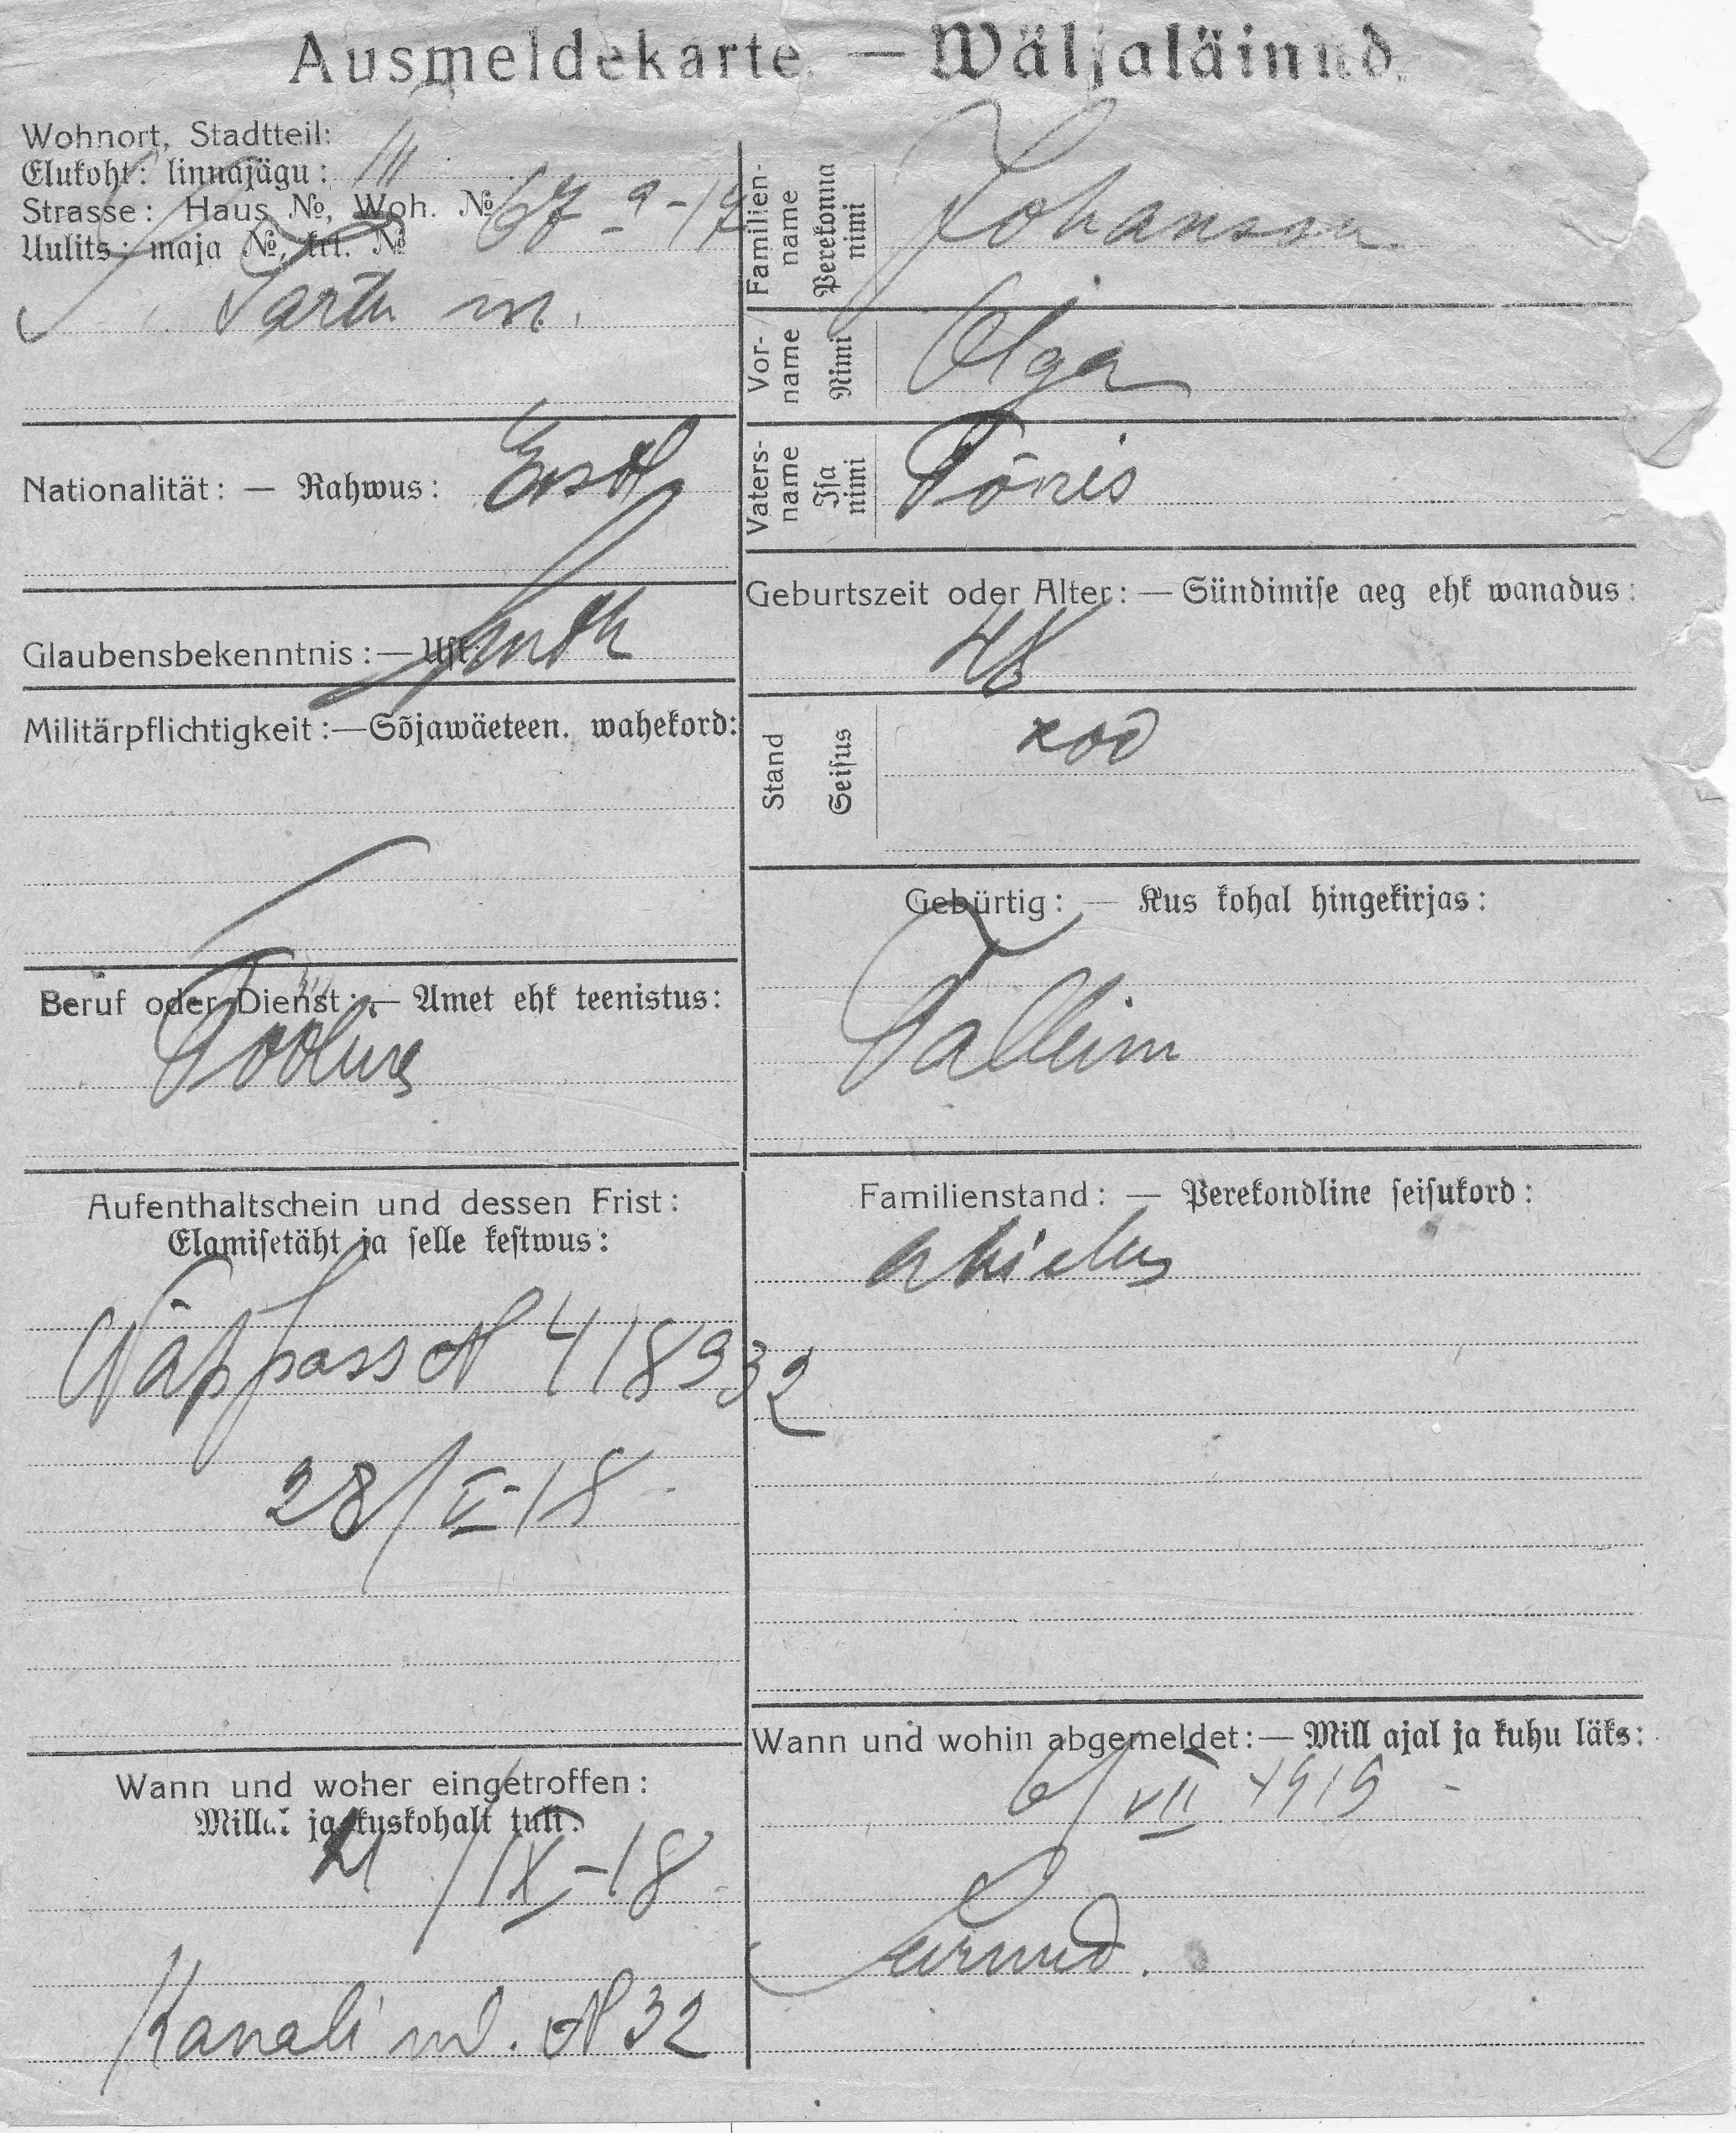 Ausmeldekarte. — Wäljaläinud.
Wohnort, Stadtteil:
Elukoht: linnajägu: III
Strasse: Haus №, Woh. №
Uulits: maja №, krt. № 67 a - 17
Tartu m.
Nationalität: — Rahwus: Eestl
Glaubensbekenntnis: — Usk: luth
Militärpflichtigkeit: — Sõjawäeteen. wahekord:
Beruf oder Dienst: — Amet ehk teenistus:
Tööline
Aufenthaltschein und dessen Frist:
Elamisetäht ja selle kestwus:
Wäjspass № 418932
28/V-18
Wann und woher eingetroffen:
Millal ja kuskohalt tuli:
21/IX-18
Kanali № 32
Familien-name Perekonna nimi Johanson
Vor-name Nimi Olga
Vaters-name Isa nimi Tõnis
Geburtszeit oder Alter: — Sündimise aeg ehk wanadus:
48
Stand Seisus
Gebürtig: — Kus kohal hingekirjas:
Tallinn
Familienstand: — Perekondline seisukord:
abielus
Wann und wohin abgemeldet: — Mill ajal ja kuhu läks:
6/VII 1919
Surnud.